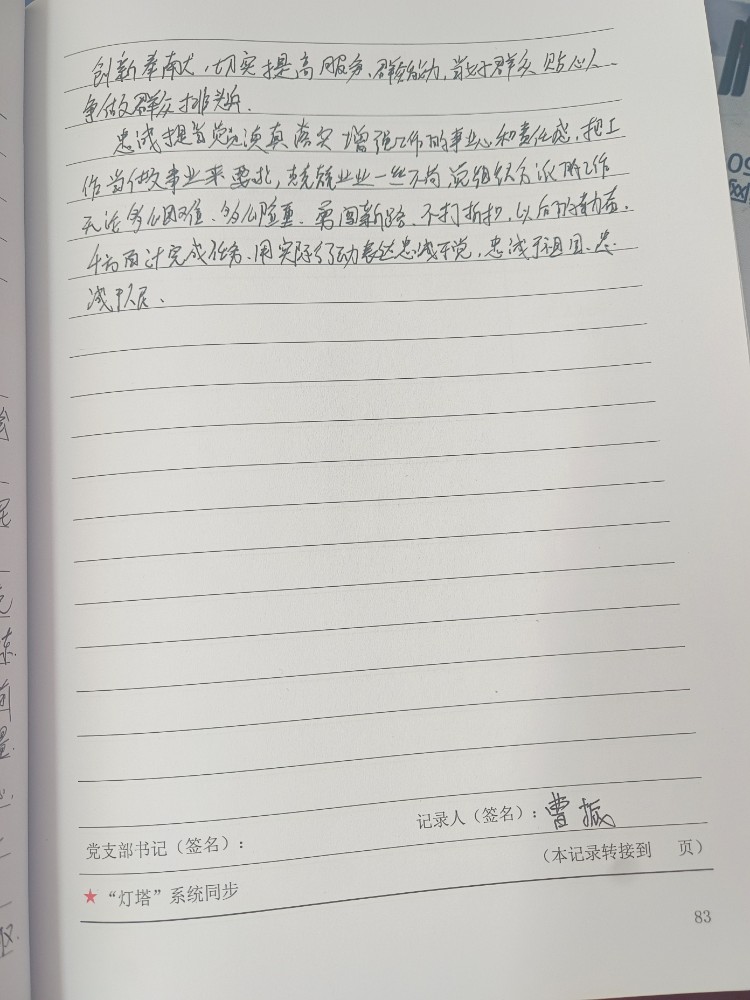 创新奉献、切实提高服务群众能力,当好群众贴心人
争做群众排头兵.
忠诚担当党认真落实 增强工作的事业心和责任感,把工
作当做事业来要求,兢兢业业一丝不苟 党组织分派的工作
无论多么困难、多么险重 勇闯新路、不打折扣,以后的
千方百计完成任务、用实际行动表达忠诚于党,忠诚于祖国、忠
诚于人民、
记录人(签名):曹振
党支部书记(签名):
(本记录转接到 页)
★“灯塔”系统同步
83